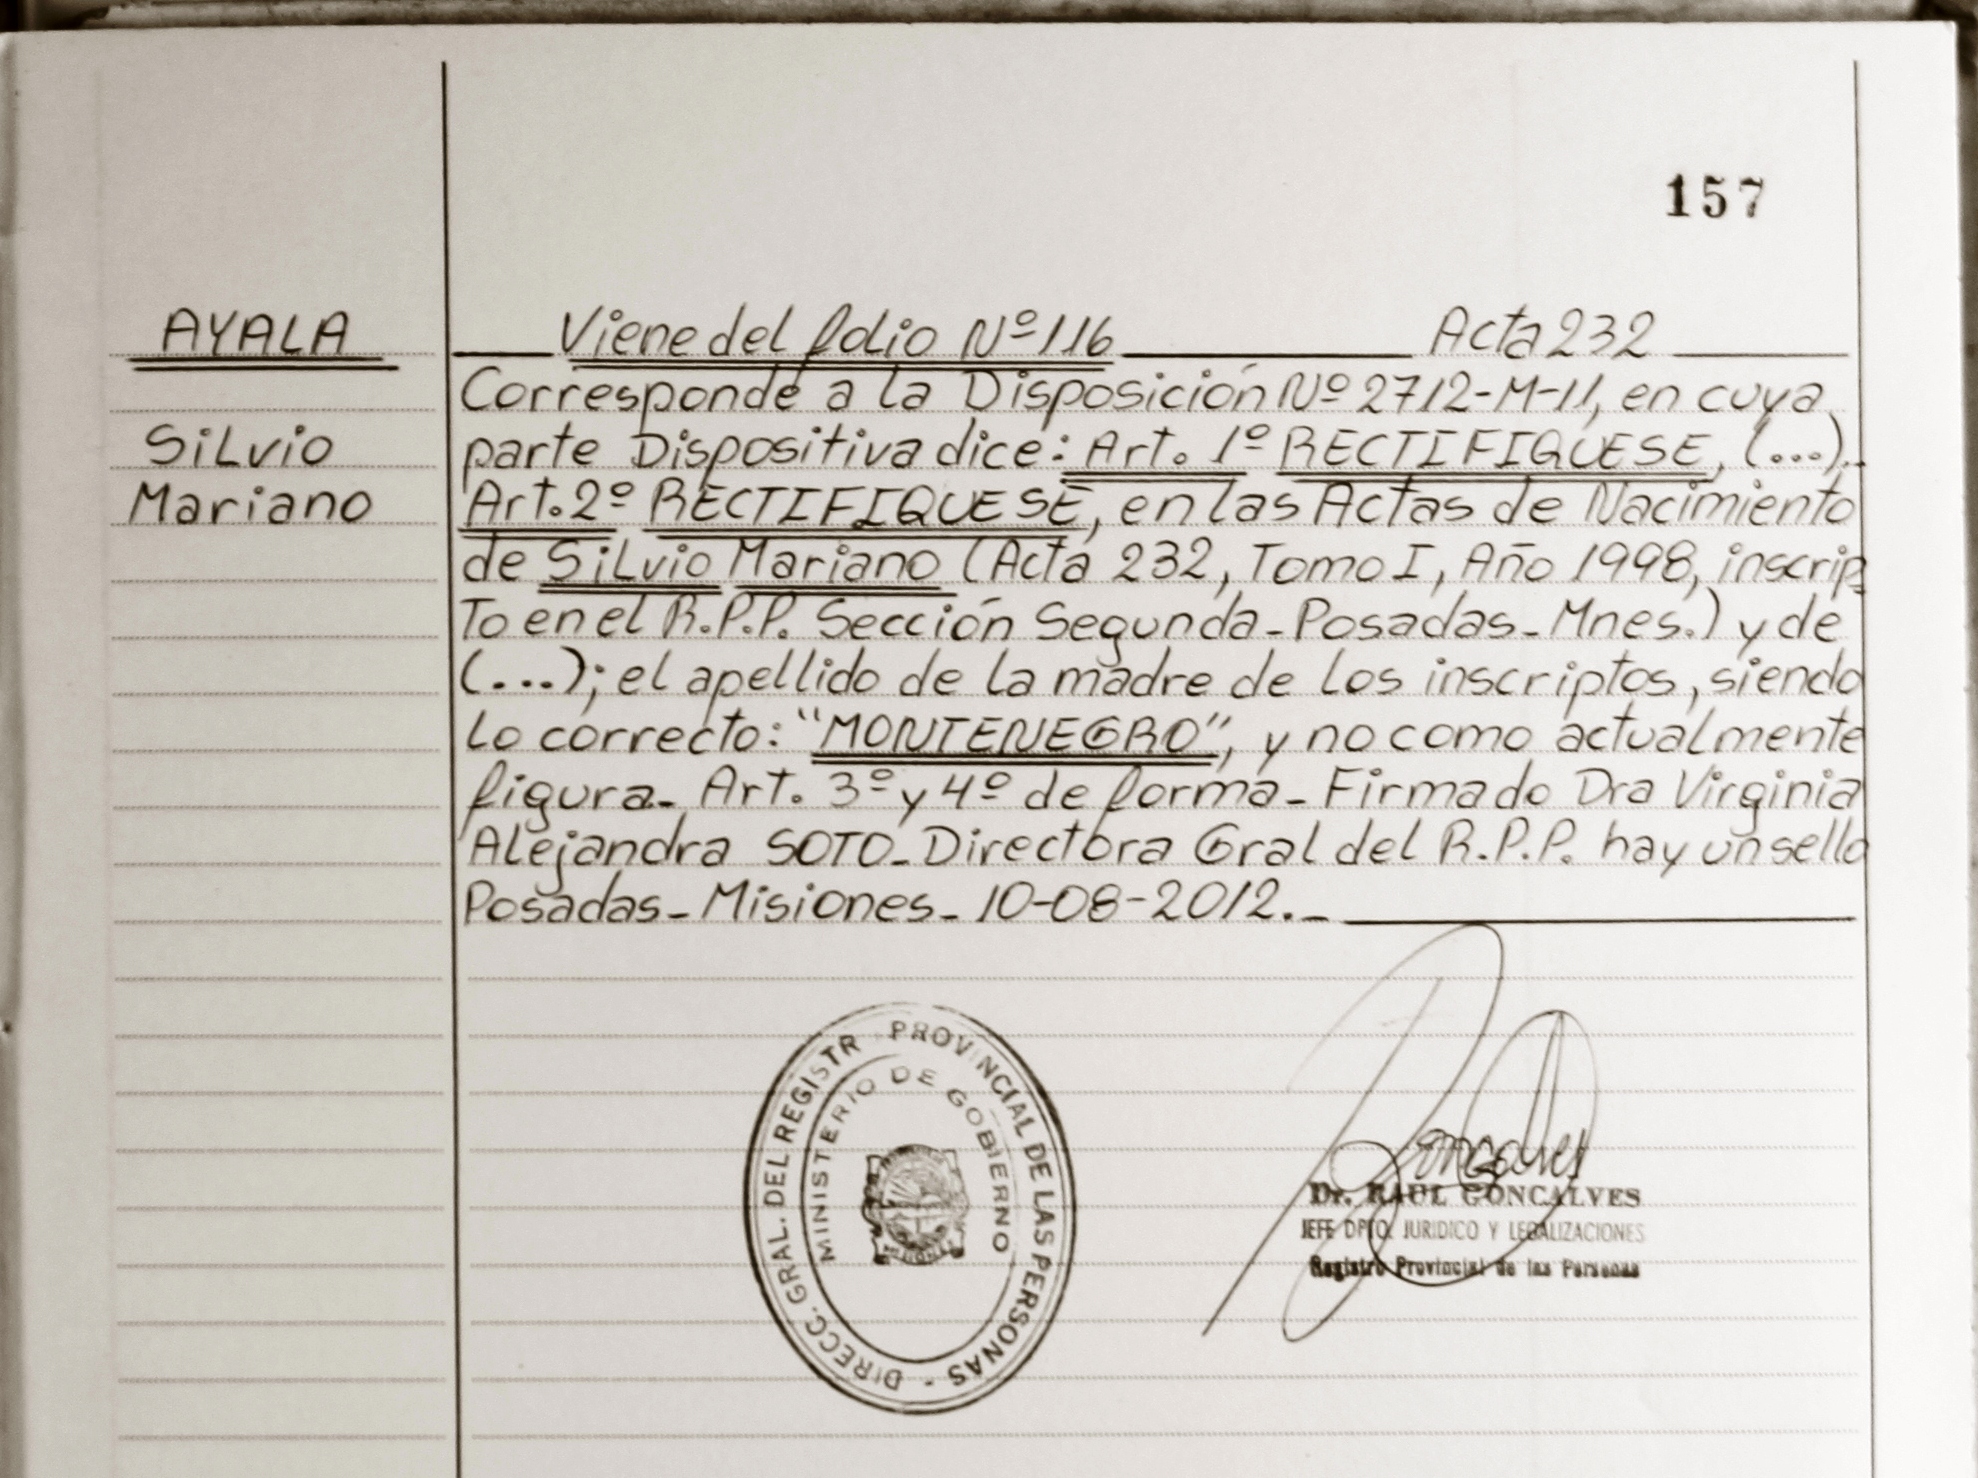 157
AYALA
Silvio
Mariano
Viene del folio Nº 116 Acta 232
Corresponde a la Disposición Nº 2712-M-11, en cuya
parte Dispositiva dice: Art. 1º RECTIFIQUESE, (...).
Art. 2º RECTIFIQUESE, en las Actas de Nacimiento
de Silvio Mariano (Acta 232, Tomo I, Año 1998, inscrip
to en el R.P.P. Sección Segunda - Posadas - Mnes.) y de
(...); el apellido de la madre de los inscriptos, siendo
lo correcto: "MONTENEGRO", y no como actualmente
figura - Art. 3º y 4º de forma - Firmado Dra Virginia
Alejandra SOTO - Directora Gral del R.P.P. hay un sello
Posadas - Misiones - 10-08-2012. -
DIRECC. GRAL. DEL REGISTR PROVINCIAL DE LAS PERSONAS -
MINISTERIO DE GOBIERNO
Goncalves
Dr. RAUL GONCALVES
JEFE DPTO. JURIDICO Y LEGALIZACIONES
Registro Provincial de las Personas